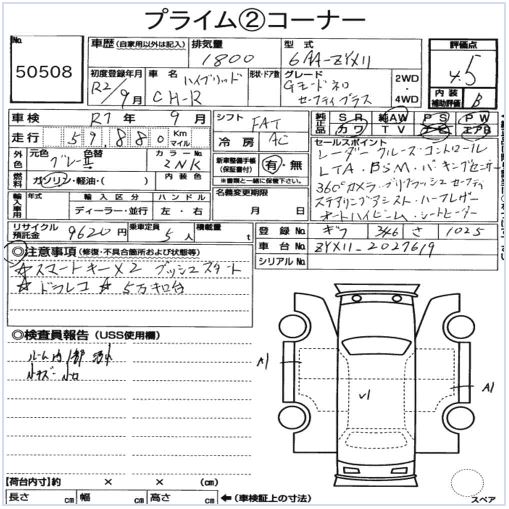 プライム②コーナー
No.
50508
車歴 (自家用以外は記入)
排気量
1800
型式
6AA-ZYX11
評価点
4.5
初度登録年月
R2/9月
車名
ハイブリッド
C-HR
形状・ドア数
グレード
Gモードネロ
セーフティプラス
2WD
・
4WD
内装
補助評価
B
車検
R7年9月
シフト
FAT
純正品
SR 純AW PS PW
カワ TV エアB
走行
59,880
Km
マイル
冷房
AC
セールスポイント
レーダークルーズコントロール
LTA・BSM・パーキングセンサー
360°カメラ・プリクラッシュセーフティ
ステアリングアシスト・ハーフレザー
オートハイビーム・シートヒーター
外色
元色
色替
グレーⅢ
カラーNo.
2NK
新車整備手帳
(保証書付)
有・無
※書類と一緒に保管して下さい。
燃料
ガソリン・軽油・( )
内装色
名義変更期限
月 日
輸入車用
年式
輸入区分
ハンドル
ディーラー・並行
左・右
リサイクル
預託金
9620円
乗車定員
5人
積載量
t
登録No.
ギフ 346 さ 1025
車台No.
ZYX11-2027619
シリアルNo.
◎注意事項 (修復・不具合箇所および状態等)
☆スマートキー×2 プッシュスタート
☆ドラレコ ☆5万キロ台
◎検査員報告 (USS使用欄)
ルーム内
小キズ・小凹
A1
√1
A1
【荷台内寸】約 × × (cm)
長さ cm 幅 cm 高さ cm
←(車検証上の寸法)
スペア